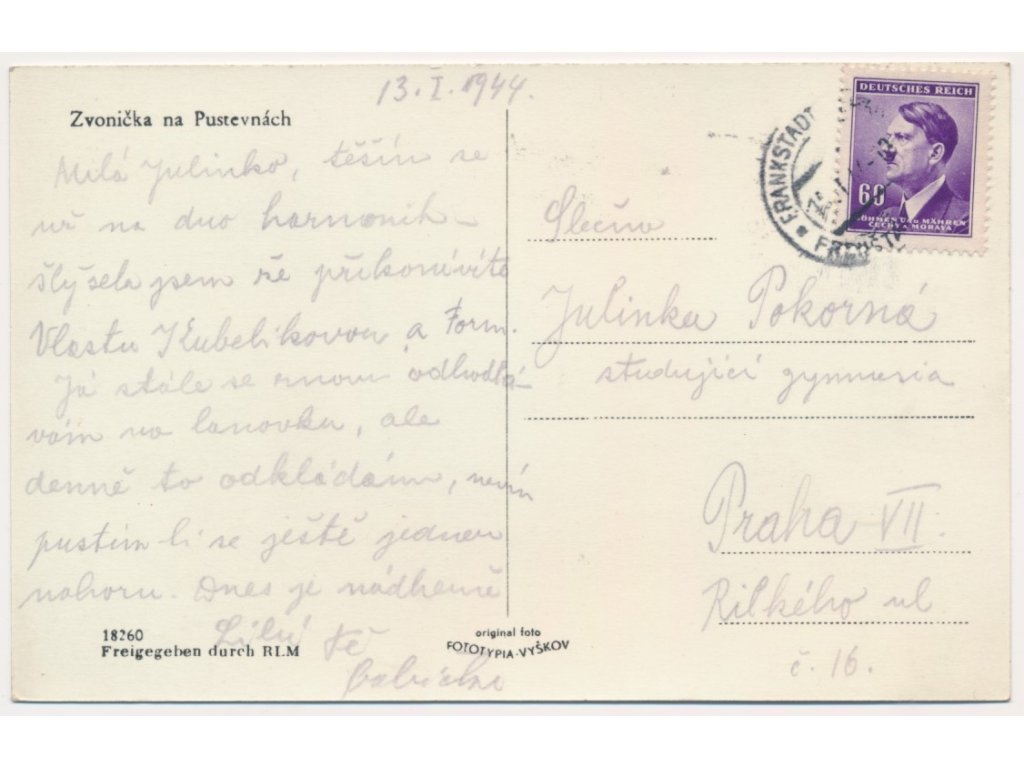 13. I. 1944.
Zvonička na Pustevnách
Milá Julinko, těším se
už na duo harmonik
Slyšela jsem že přikonávíte
Vlastu Kubelikovou a Form.
Já stále se znovu odhodlá
vám na lanovku, ale
denně to odkládám, nevím
pustím li se ještě jednou
nahoru. Dnes je nádherně
Líbá tě
18260
Freigegeben durch RLM
original foto
FOTOTYPIA-VYŠKOV
DEUTSCHES REICH
60
BÖHMEN UND MÄHREN
ČECHY A MORAVA
FRANKSTADT
Slečna
Julinka Pokorná
studující gymnasia
Praha VII.
Rilkého ul
č. 16.